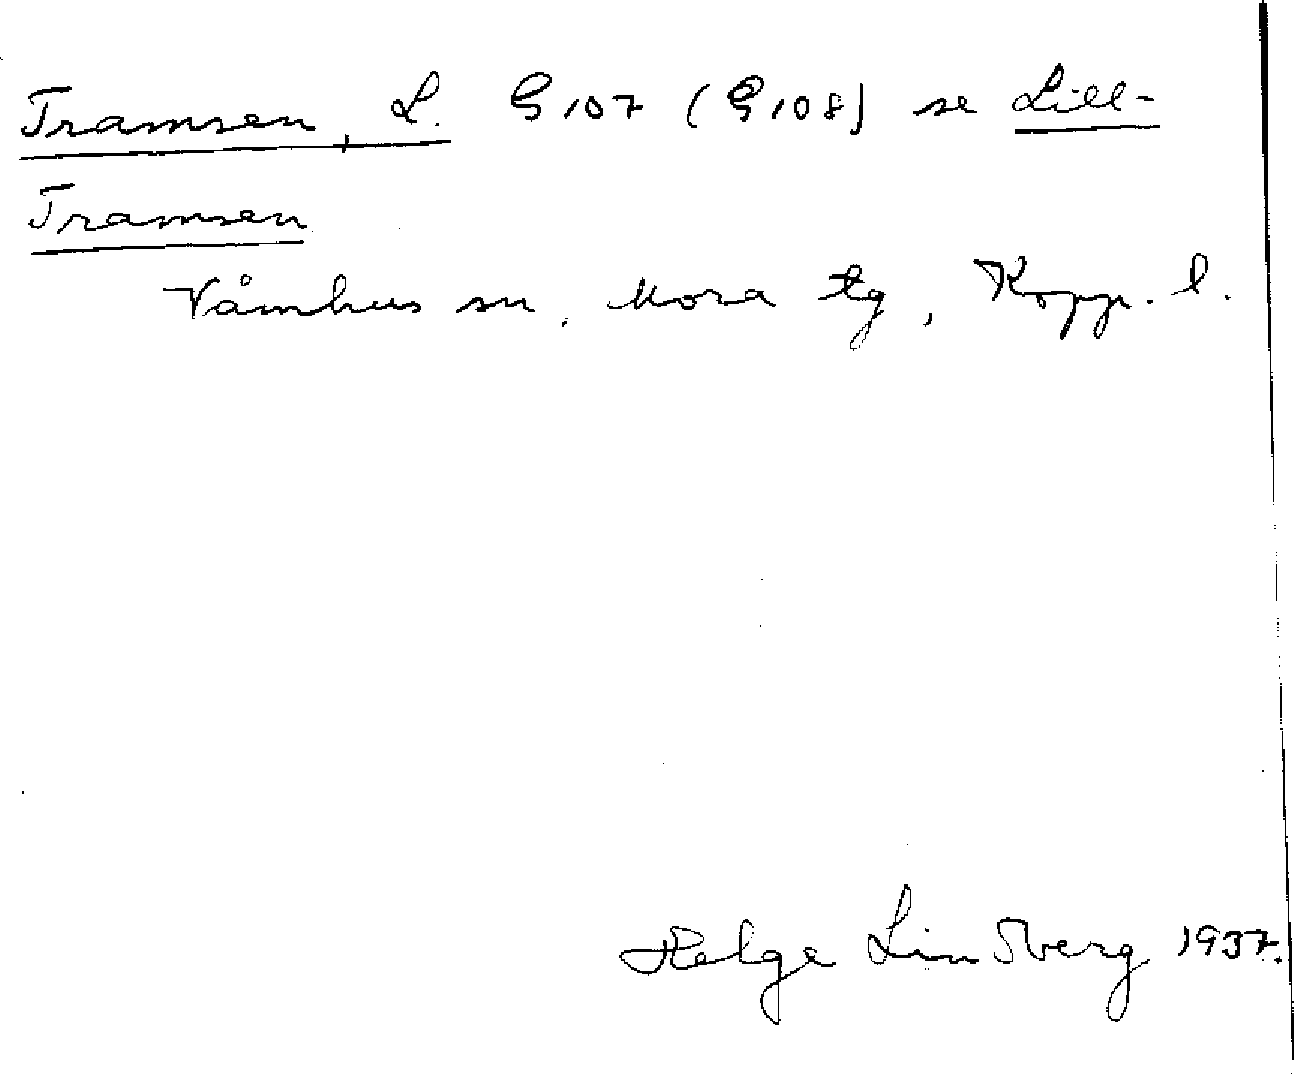 Tramsen, L. G 107 (G 108) se Lill-
Tramsen
Våmhus sn, Mora tg, Kopp. l.
Helge Lindberg 1937.